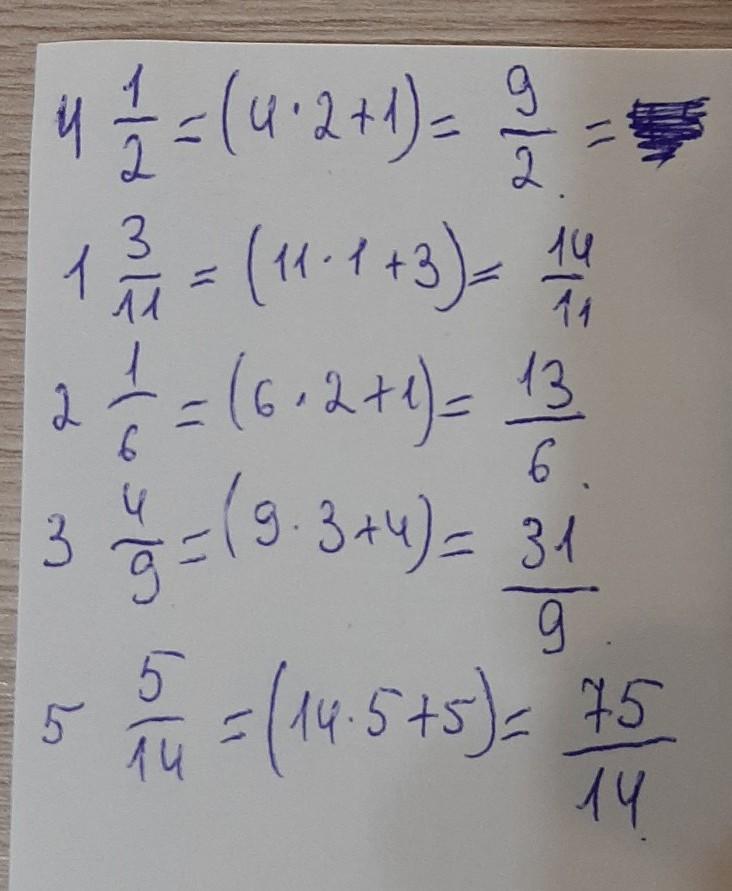 4 1/2 = (4·2+1) = 9/2 =
1 3/11 = (11·1+3) = 14/11
2 1/6 = (6·2+1) = 13/6.
3 4/9 = (9·3+4) = 31/9.
5 5/14 = (14·5+5) = 75/14.